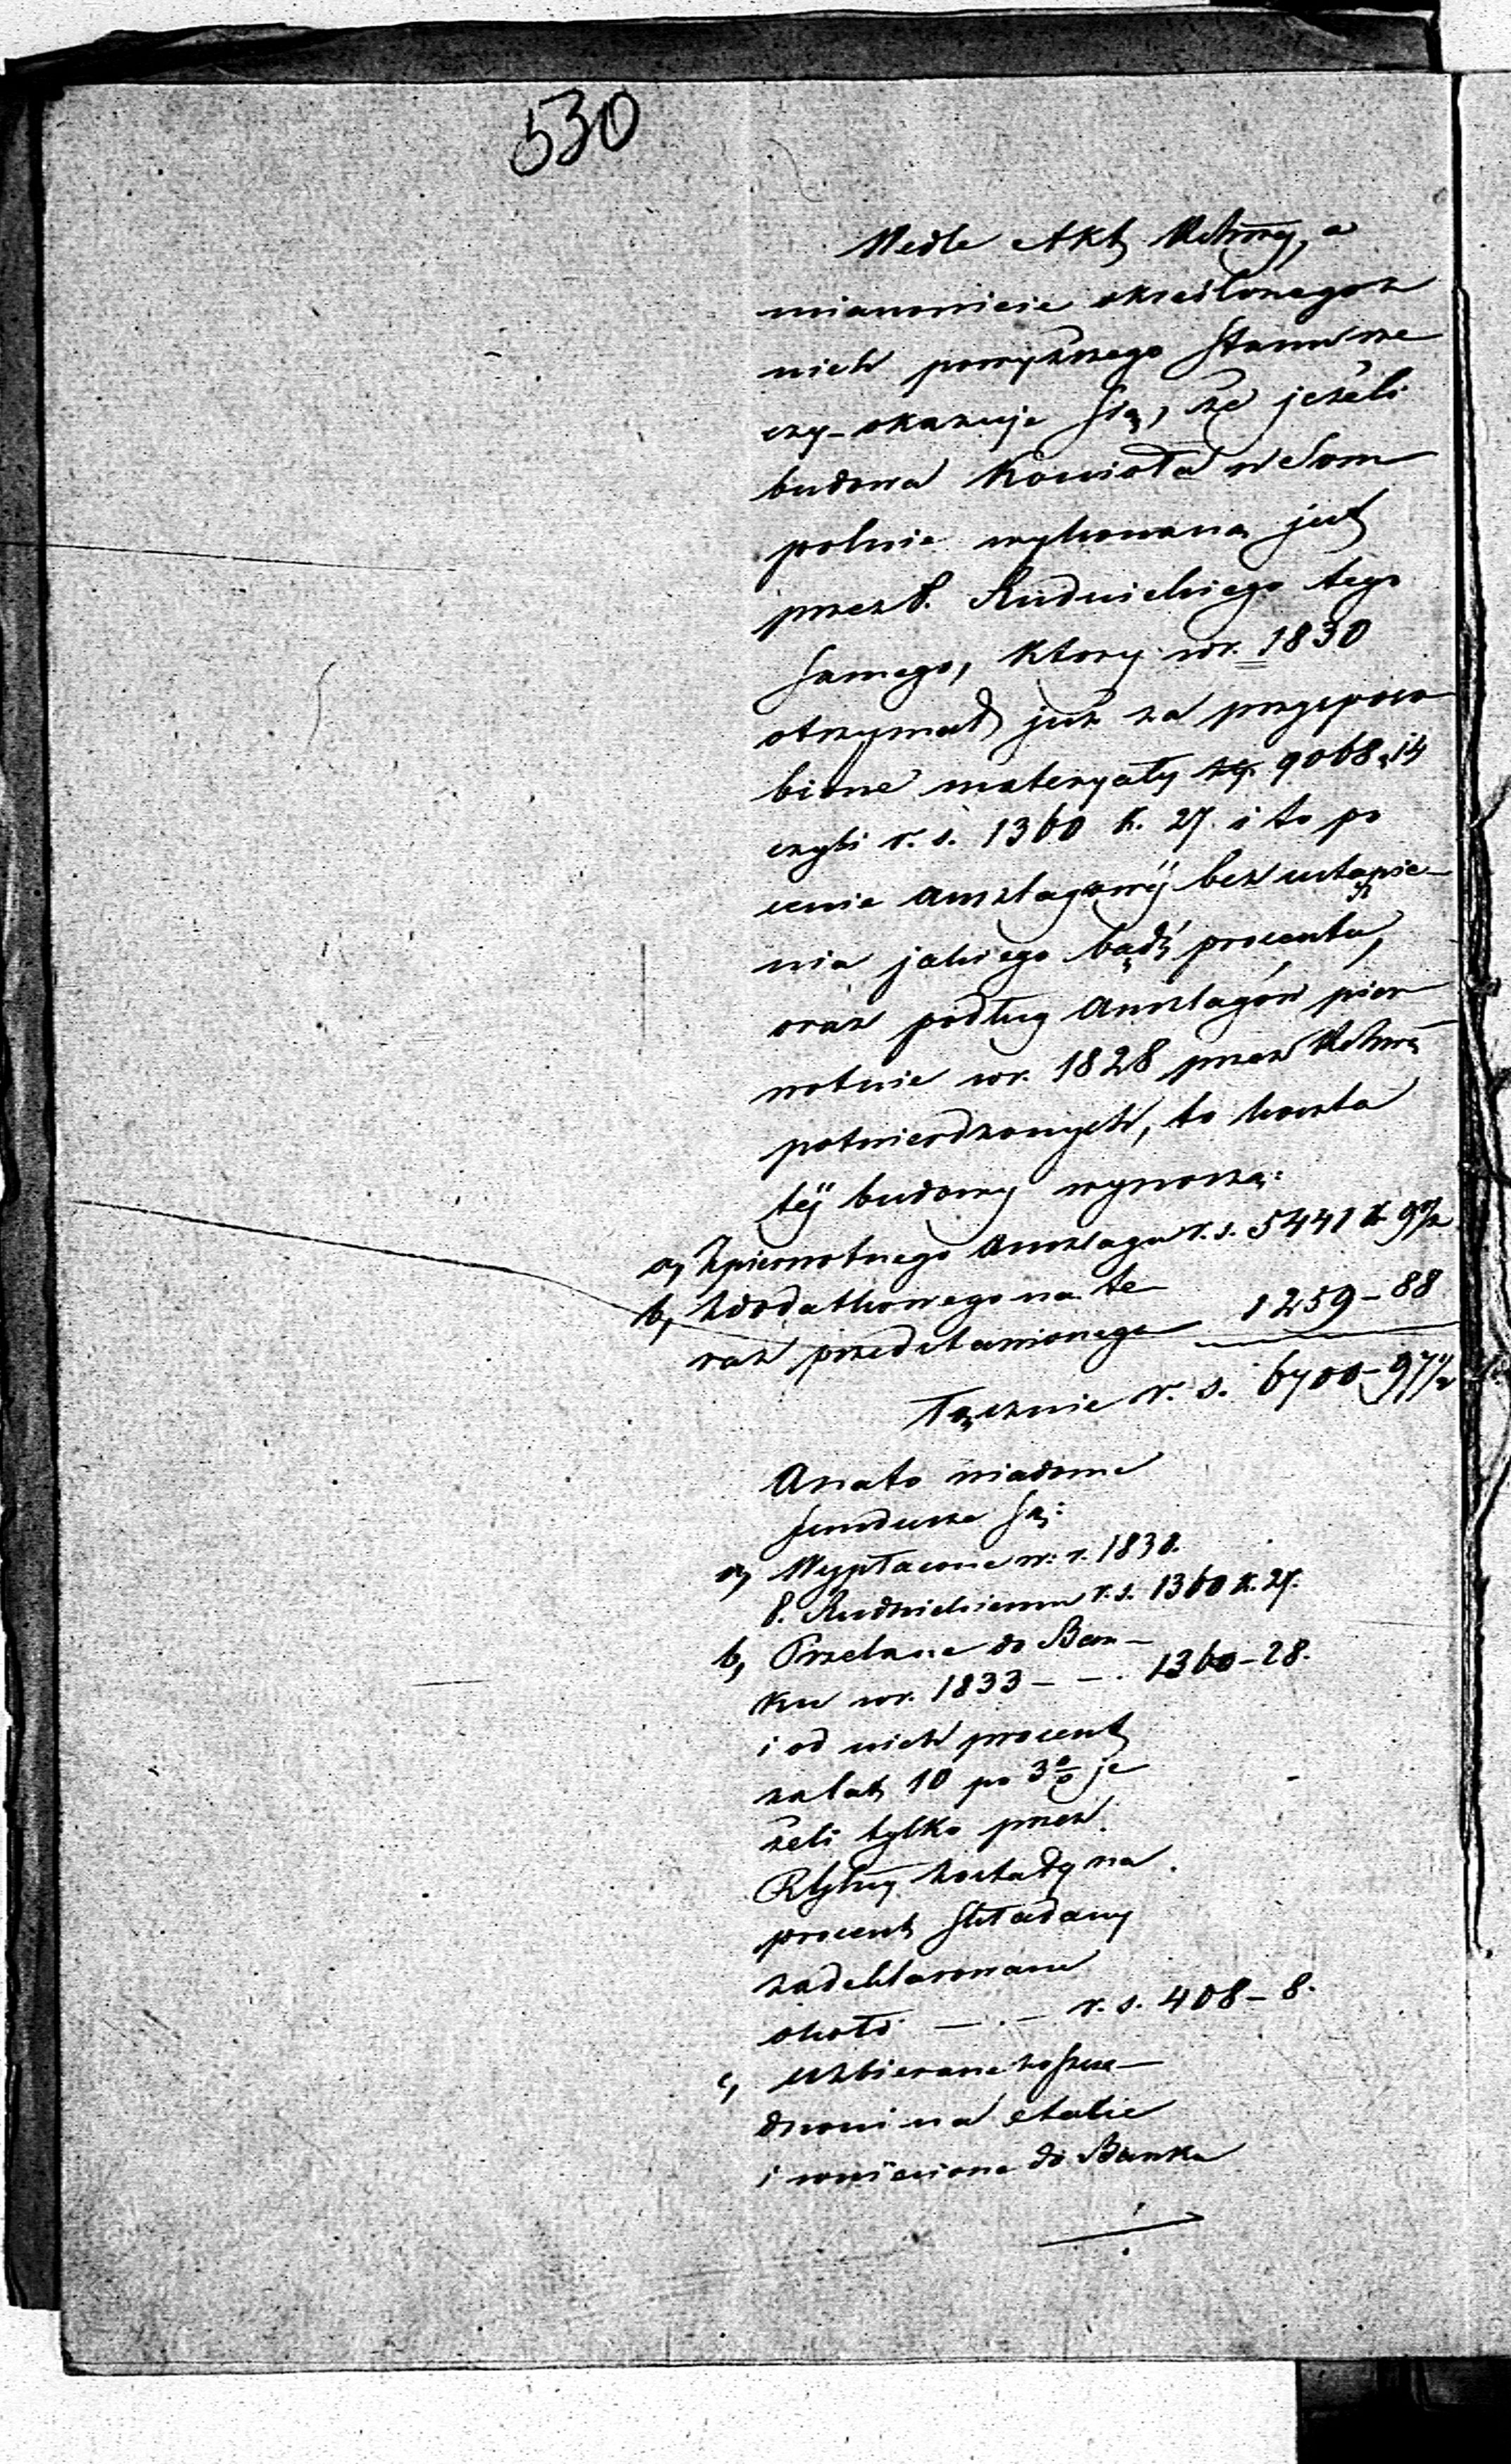 530
Wedle Akt tutwey, a
mianowicie określonego z
nich powyższego Stanu rze
czy okazuje się, że jeżeli
budowa Kościoła w Som
polnie wykonaną jest
przez P. Rudnickiego tego
samego, ktory w r. 1830
otrzymał już za przysposo
bione materyały złp. 9068,14
czyli r. s. 1360 k. 27. i to po
cenie Anszlagowej bez ustąpie-
nia jakiego bądź procentu,
oraz podług Anszlagów pier
wotnie w r. 1828 przez
potwierdzonych, to koszta
tej budowy wynoszą:
a, Z pierwotnego Anszlagu r. s. 5441 k 9½
b, z dodatkowego na te-
raz przedstawionego 1259 - 88
Łącznie r. s. 6700 - 97½
A na to wiadome
fundusze są:
a, Wypłacone w r. 1830.
P. Rudnickiemu r. s. 1360 k. 27.
b, Przelane do Ban-
ku w r. 1833 - - . 1360 - 28.
i od nich procent
za lat 10 po 3% je
żeli tylko przez
zostały na
procent składany
zadeklarowane
około - . - r. s. 408 - 8.
c, uzbierane
na etacie
i wniesione do Banku